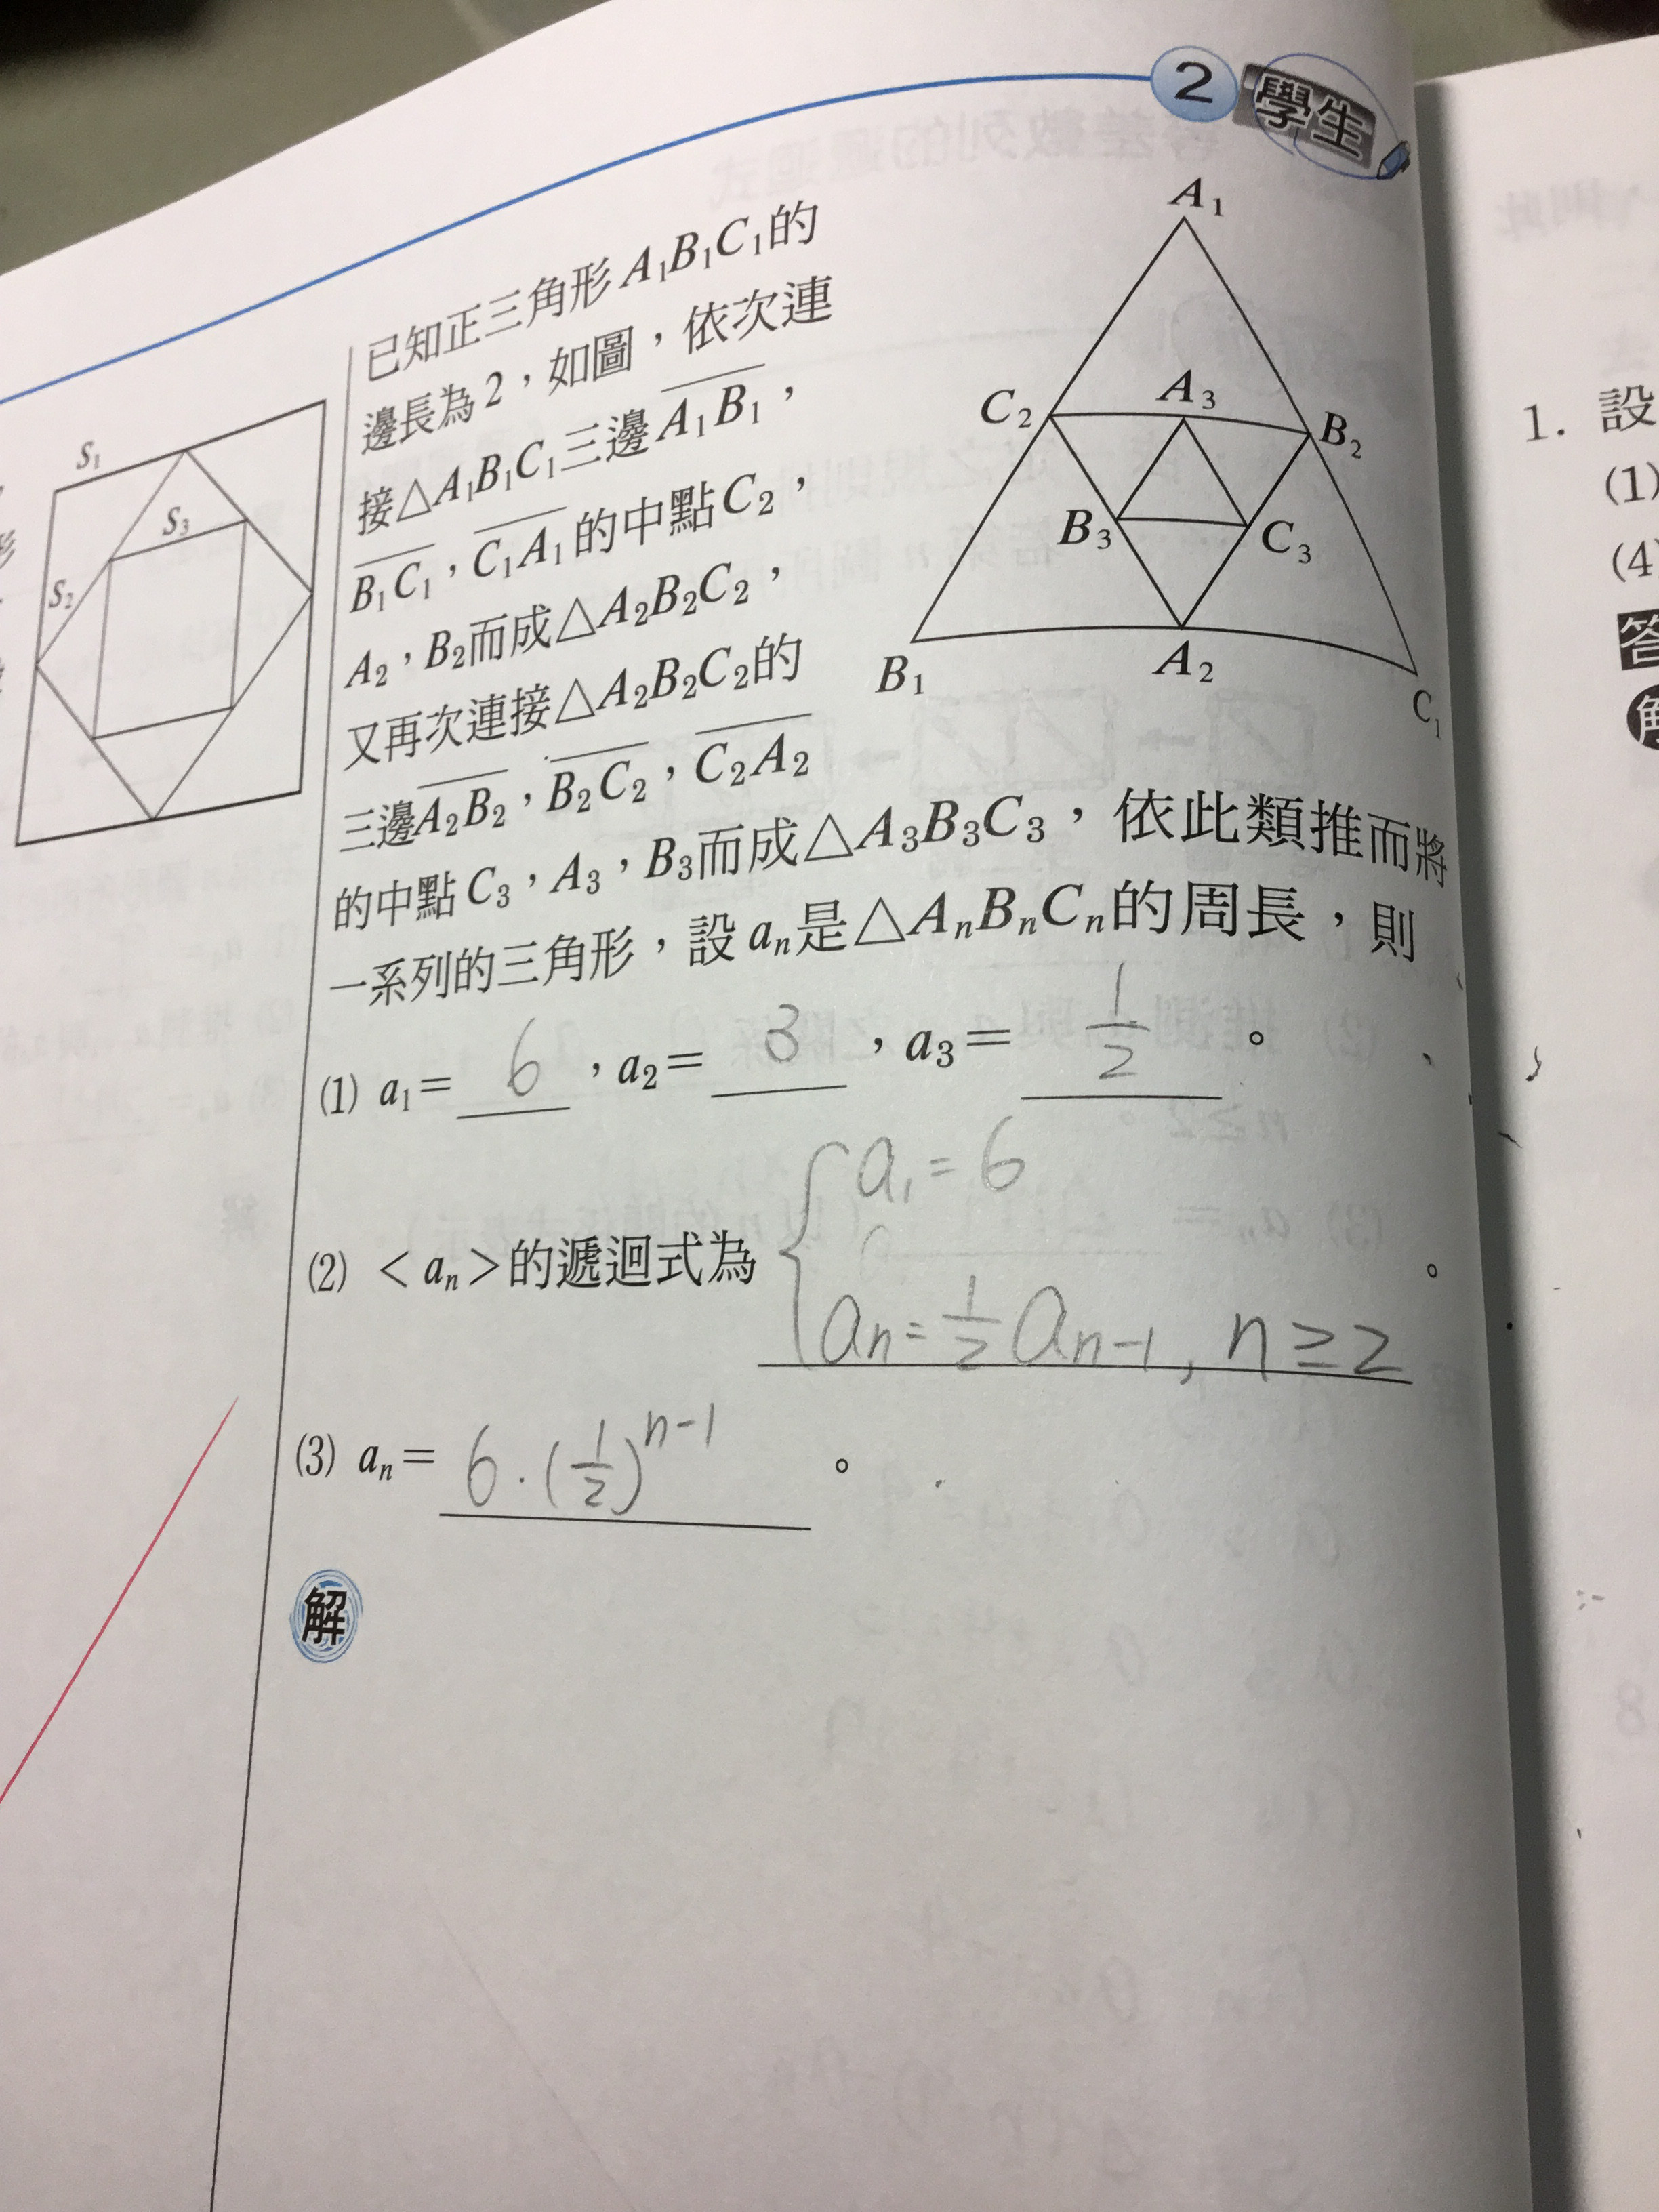 2 學生
S₁
S₃
S₂
形
已知正三角形A₁B₁C₁的
邊長為2,如圖,依次連
接△A₁B₁C₁三邊A₁B₁,
B₁C₁,C₁A₁的中點C₂,
A₂,B₂而成△A₂B₂C₂,
又再次連接△A₂B₂C₂的
三邊A₂B₂,B₂C₂,C₂A₂
的中點C₃,A₃,B₃而成△A₃B₃C₃,依此類推而將
一系列的三角形,設aₙ是△AₙBₙCₙ的周長,則
A₁
C₂ A₃ B₂
B₃ C₃
B₁ A₂ C₁
(1) a₁= 6 ,a₂= 3 ,a₃= 1/2 。
(2) <aₙ>的遞迴式為 { a₁=6
aₙ=1/2 aₙ₋₁, n≥2 。
(3) aₙ= 6·(1/2)ⁿ⁻¹ 。
解
1. 設
(1)
(4)
答
解